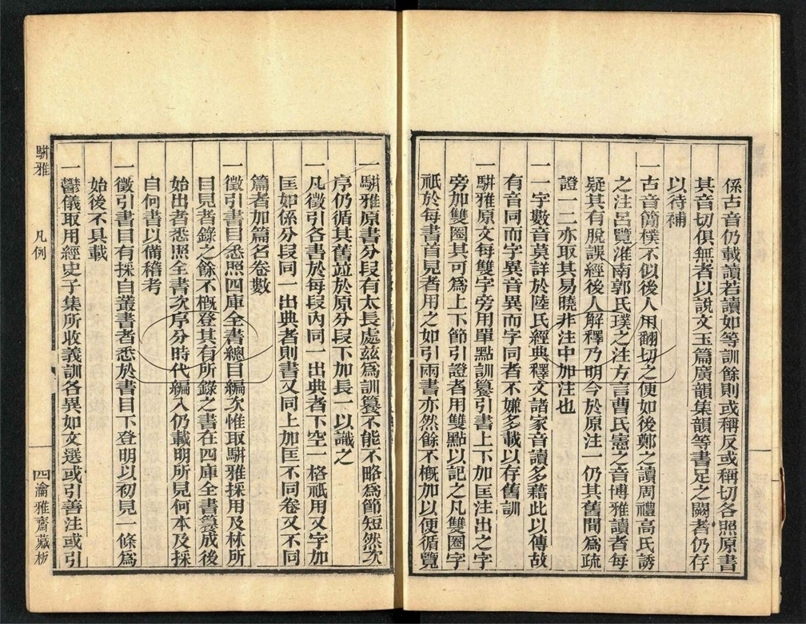 係古音仍載讀若讀如等訓餘則或稱反或稱切各照原書
其音切俱無者以說文玉篇廣韻集韻等書足之闕者仍存
以待補
一古音簡樸不似後人用翻切之便如後鄭之讀周禮高氏誘
之注呂覽淮南郭氏璞之注方言曹氏憲之音博雅讀者每
疑其有脫誤經後人解釋乃明今於原注一仍其舊間為疏
證一二亦取其易曉非注中加注也
一一字數音莫詳於陸氏經典釋文諸家音讀多藉此以傳故
有音同而字異音異而字同者不嫌多載以存舊訓
一駢雅原文每雙字旁用單點訓纂引書上下加匡注出之字
旁加雙圈其可為上下節引證者用雙點以記之凡雙圈字
祇於每書首見者用之如引兩書亦然餘不槪加以便循覽
一駢雅原書分段有太長處茲為訓纂不能不略為節短然次
序仍循其舊竝於原分段下加長一以識之
一凡徵引各書於每段內同一出典者下空一格祇用又字加
匡如係分段同一出典者則書又同上加匡不同卷又不同
篇者加篇名卷數
一徵引書目悉照四庫全書總目編次惟取駢雅採用及林所
目見者錄之餘不槪登其有所錄之書在四庫全書纂成後
始出者悉照全書次序分時代編入仍載明所見何本及採
自何書以備稽考
一徵引書目有採自叢書者悉於書目下登明以初見一條為
始後不具載
一鬱儀取用經史子集所收義訓各異如文選或引善注或引
駢雅
凡例
四
瀹雅齋藏板